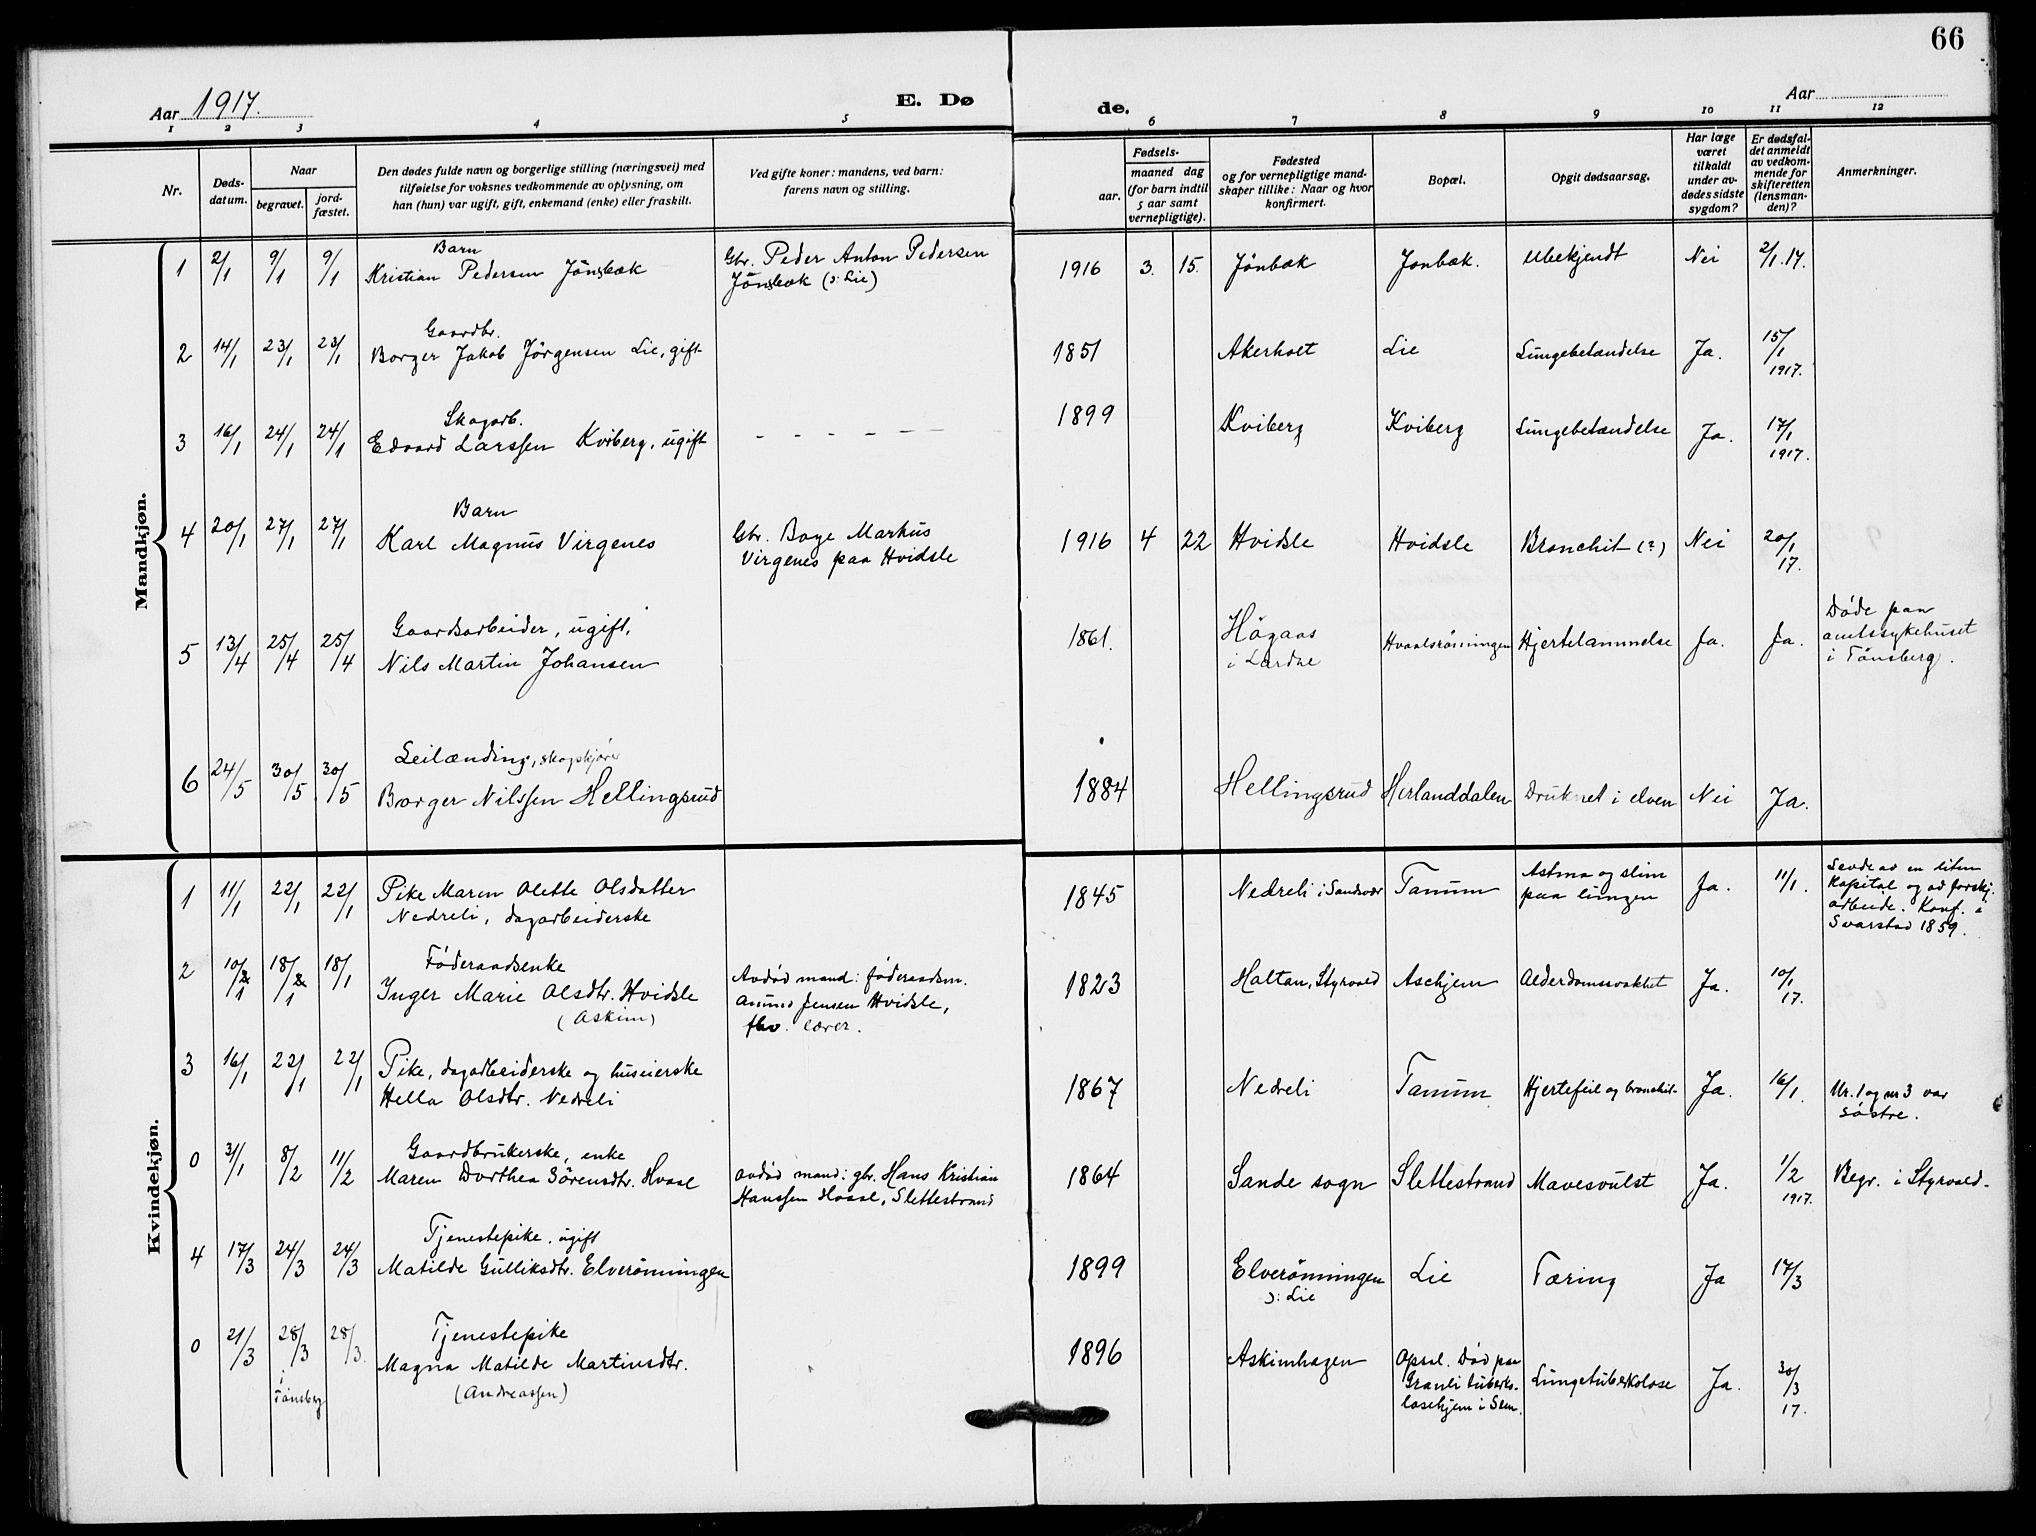 66
Aar 1917.
E. Dø
de.
Aar
1 2 3 4 5 6 7 8 9 10 11 12
Nr.
Døds-
datum.
Naar
begravet.
jord-
fæstet.
Den dødes fulde navn og borgerlige stilling (næringsvei) med
tilføielse for voksnes vedkommende av oplysning, om
han (hun) var ugift, gift, enkemand (enke) eller fraskilt.
Ved gifte koner: mandens, ved barn:
farens navn og stilling.
Fødsels-
aar.
maaned dag
(for barn indtil
5 aar samt
vernepligtige).
Fødested
og for vernepligtige mand-
skaper tillike: Naar og hvor
konfirmert.
Bopæl.
Opgit dødsaarsag.
Har læge
været
tilkaldt
under av-
dødes sidste
sygdom?
Er dødsfal-
det anmeldt
av vedkom-
mende for
skifteretten
(lensman-
den)?
Anmerkninger.
Mandkjøn.
Barn
1 2/1 9/1 9/1 Kristian Pedersen Jönsbæk
Gbr. Peder Anton Pedersen
Jönsbæk (ɔ: Lie)
1916 3. 15. Jönbæk Jonbæk. Ubekjendt Nei 2/1.17.
Gaardbr.
2 14/1 23/1 23/1 Borger Jakob Jörgensen Lie, gift
1851 Akerholt Lie Lungebetændelse Ja. 15/1 1917.
Skogarb.
3 16/1 24/1 24/1 Edvard Larssen Kviberg, ugift - - - - - -
1899 Kviberg Kviberg Lungebetændelse Ja. 17/1 1917.
Barn
4 20/1 27/1 27/1 Karl Magnus Virgenes
Gbr. Boye Markus
Virgenes paa Hvidsle
1916 4 22 Hvidsle Hvidsle Bronchit (?) Nei 20/1 17.
Gaardsarbeider, ugift,
5 13/4 25/4 25/4 Nils Martin Johansen
1861. Högaas
i Lardal
Hvaalsrönningen Hjertelammelse Ja. Ja.
Döde paa
amtssykehuset
i Tönsberg.
Leilænding, skogskjörer
6 24/5 30/5 30/5 Borger Nilssen Hellingsrud
1884 Hellingsrud Herlanddalen Druknet i elven Nei Ja.
Kvindekjøn.
1 11/1 22/1 22/1 Pike Maren Olette Olsdatter
Nedreli, dagarbeiderske
1845 Nedreli i Sandsvær Tanum Astma og slim
paa lungen
Ja. 11/1.
Levde av en liten
kapital og av forskj.
arbeide. Konf. i
Svarstad 1859.
Föderaadsenke
2 10/1 18/1 18/1 Inger Marie Olsdtr. Hvidsle
(Askim)
Avdöd mand: föderaadsm.
Anund Jensen Hvidsle,
fhv. lærer.
1823 Holtan, Styrvold Aschjem Alderdomssvakhet Ja. 10/1 17.
3 16/1 22/1 22/1 Pike, dagarbeiderske og huseierske
Hella Olsdtr. Nedreli
1867 Nedreli Tanum Hjertefeil og bronchit. Ja. 16/1.
Nr. 1 og nr 3 var
söstre.
Gaardbrukerske, enke
0 31/1 8/2 11/2 Maren Dorthea Sörensdtr. Hvaal
Avdöd mand: gbr. Hans Kristian
Hanssen Hvaal, Slettestrand
1864 Sande sogn Slettestrand Mavesvulst Ja. 1/2 1917. Begr. i Styrvold.
Tjenestepike. ugift
4 17/3 24/3 24/3 Matilde Gulliksdtr. Elverönningen
1899 Elverönningen
ɔ: Lie
Lie Tæring Ja 17/3
Tjenestepike
0 21/3 28/3 i Tönsberg 28/3. Magna Matilde Martinsdtr.
(Andreassen)
1896 Askimhagen Opsal. Död paa
Granli tuberku-
losehjem i Sem.
Lungetuberkolose Ja. 30/3 17.